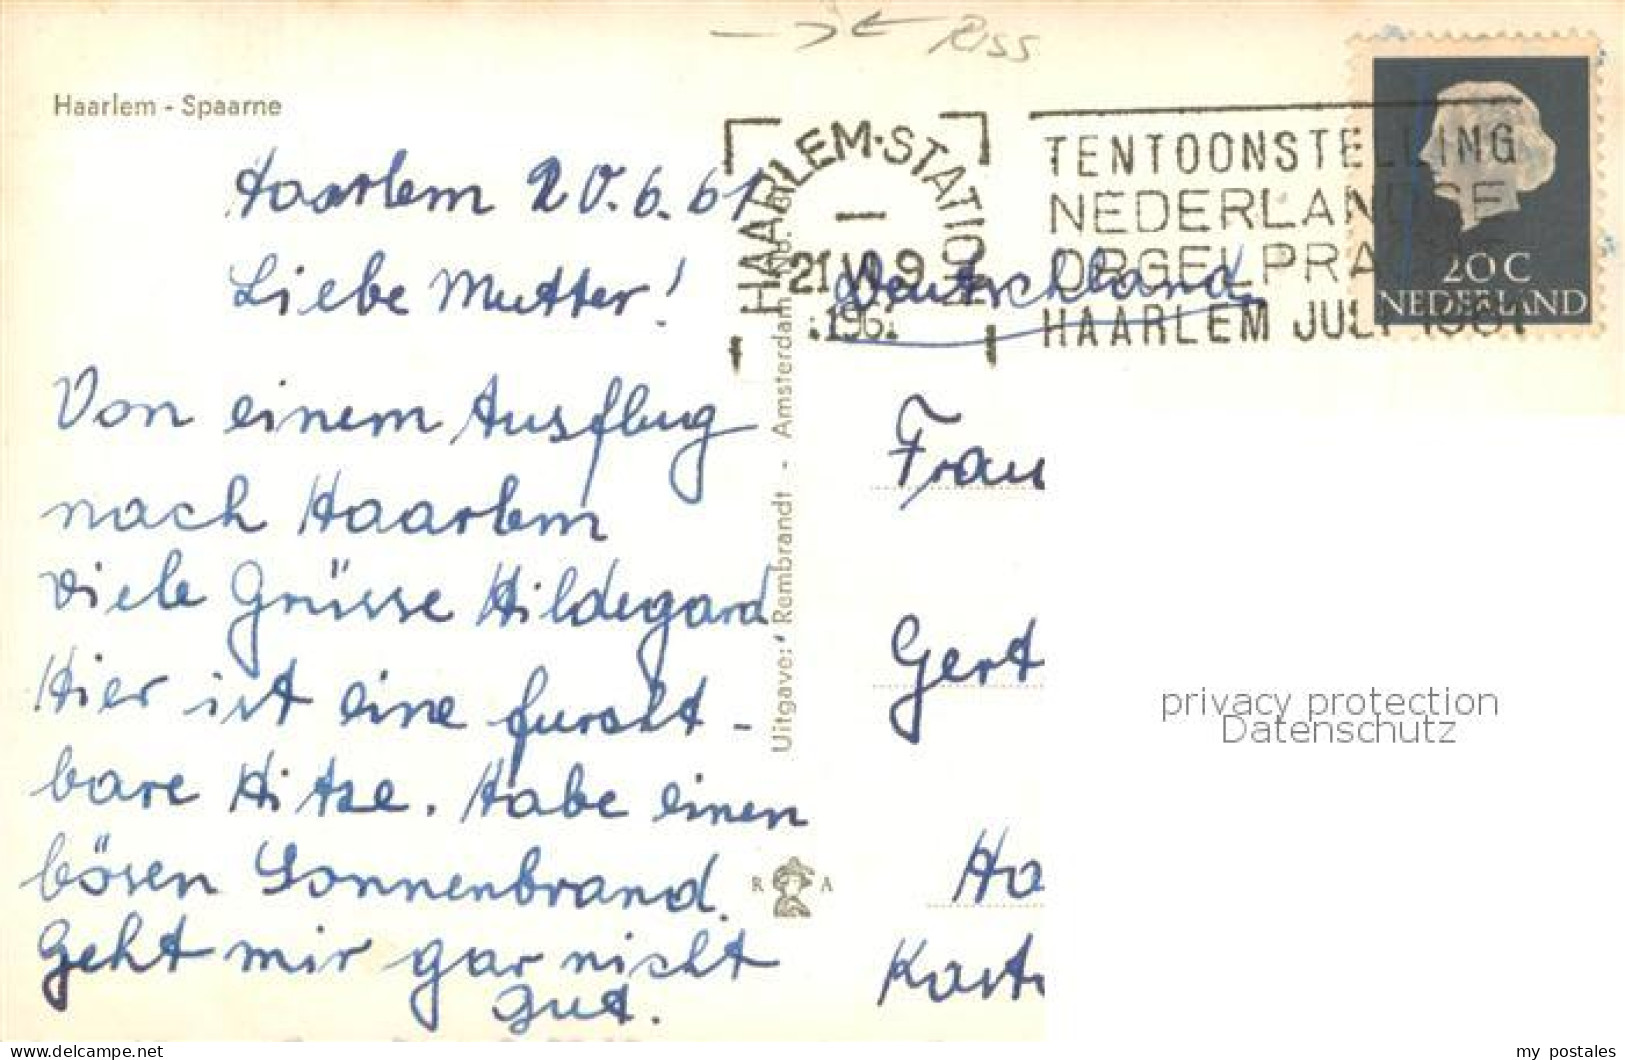 Riss
Haarlem - Spaarne
Haarlem 20.6.61
Liebe Mutter!
Von einem Ausflug
nach Haarlem
viele Grüsse Hildegard
Hier ist eine furcht-
bare Hitze. Habe einen
bösen Sonnenbrand.
Geht mir gar nicht
gut.
HAARLEM-STATION
21 VI 9
196
TENTOONSTELLING
NEDERLANDSE
ORGELPRA
HAARLEM JULI 1961
20 C
NEDERLAND
Deutschland
Uitgave: Rembrandt - Amsterdam
R A
Frau
Gert
Ha
privacy protection
Datenschutz
my_postales
delcampe.net